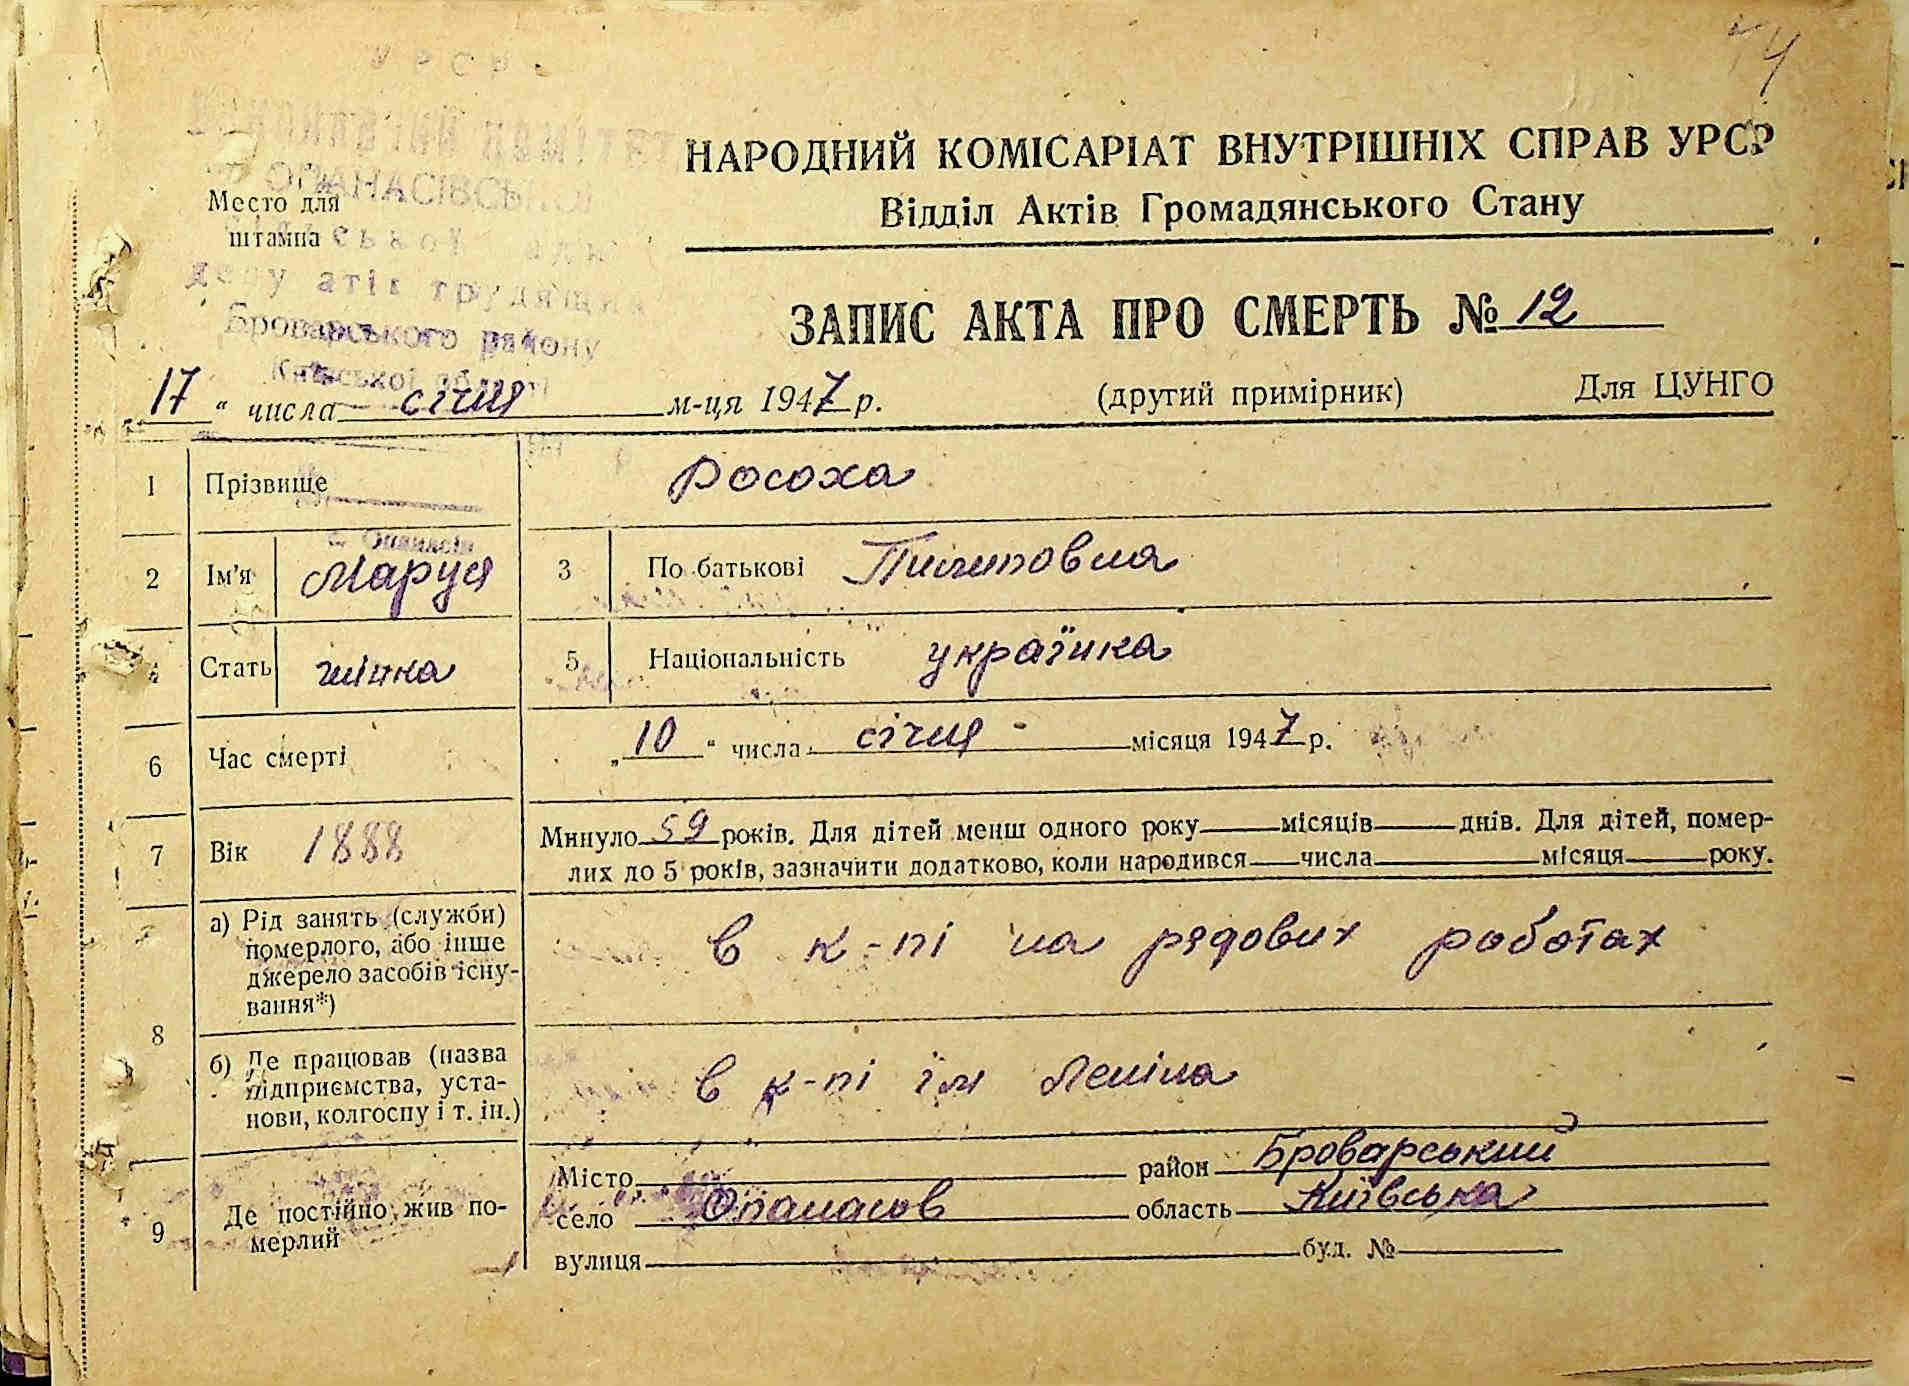 УРСР
ОПАНАСІВСЬКОЇ
Место для
штампа
НАРОДНИЙ КОМІСАРІАТ ВНУТРІШНІХ СПРАВ УРСР
Відділ Актів Громадянського Стану
депутатів трудящих
Броварського району
Київської області
ЗАПИС АКТА ПРО СМЕРТЬ № 12
„17“ числа січня м-ця 1947 р. (другий примірник) Для ЦУНГО
1 Прізвище Росоха
2 Ім'я Маруся 3 По батькові Пилиповна
4 Стать жінка 5 Національність українка
6 Час смерті „10“ числа січня місяця 1947 р.
7 Вік 1888 Минуло 59 років. Для дітей менш одного року місяців днів. Для дітей, помер-
лих до 5 років, зазначити додатково, коли народився числа місяця року.
8 а) Рід занять (служби)
померлого, або інше
джерело засобів існу-
вання*)
в к-пі на рядових роботах
б) Де працював (назва
підприємства, уста-
нови, колгоспу і т. ін.)
в к-пі ім Леніна
9 Де постійно жив по-
мерлий
Місто район Броварський
село Опанасов область Київська
вулиця буд. №